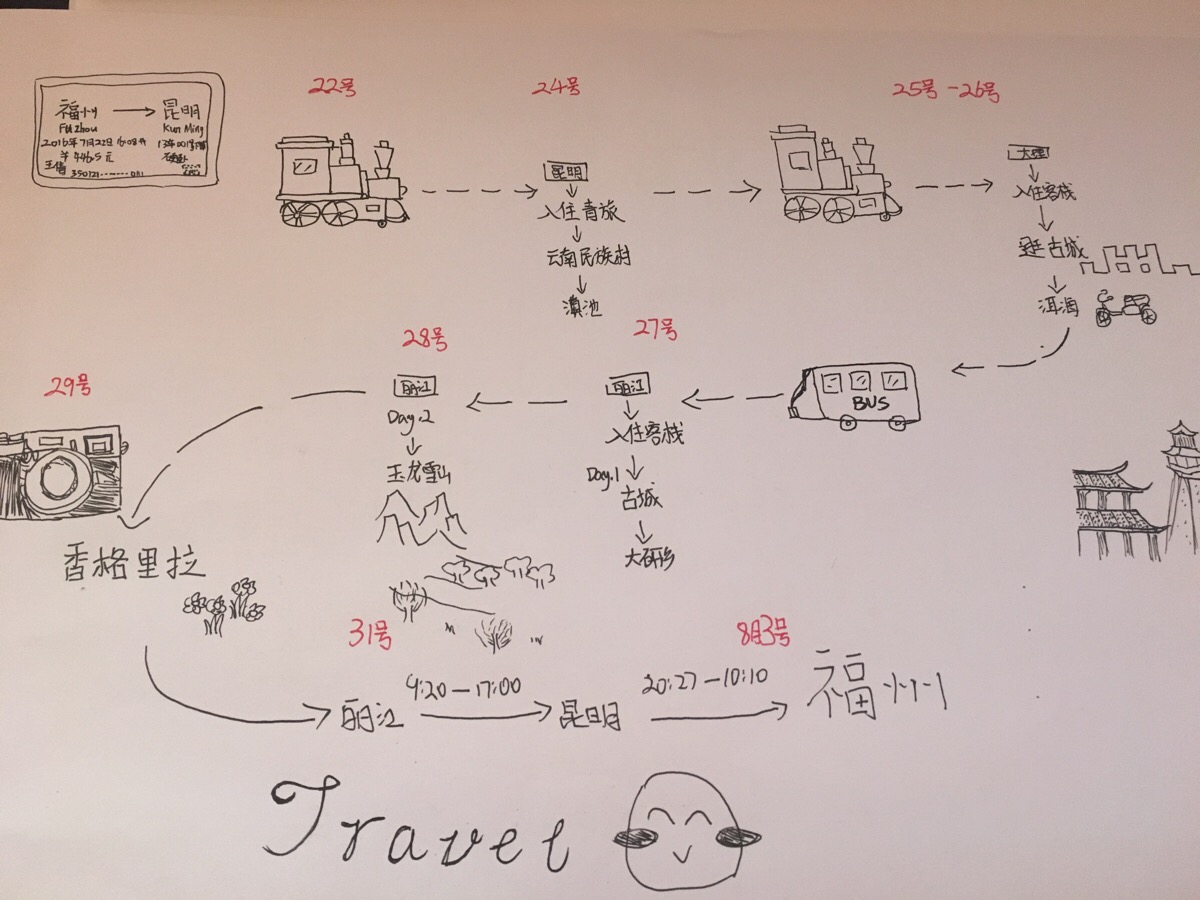 福州 → 昆明
Fu Zhou Kun Ming
2016年7月22日 16:08开
¥446.5元
22号
24号
昆明
入住青旅
云南民族村
滇池
25号-26号
大理
入住客栈
逛古城
洱海
BUS
27号
丽江
入住客栈
Day.1
古城
28号
丽江
Day.2
玉龙雪山
29号
香格里拉
31号
丽江
9:20-17:00
昆明
20:27-10:10
8月3号
福州
Travel